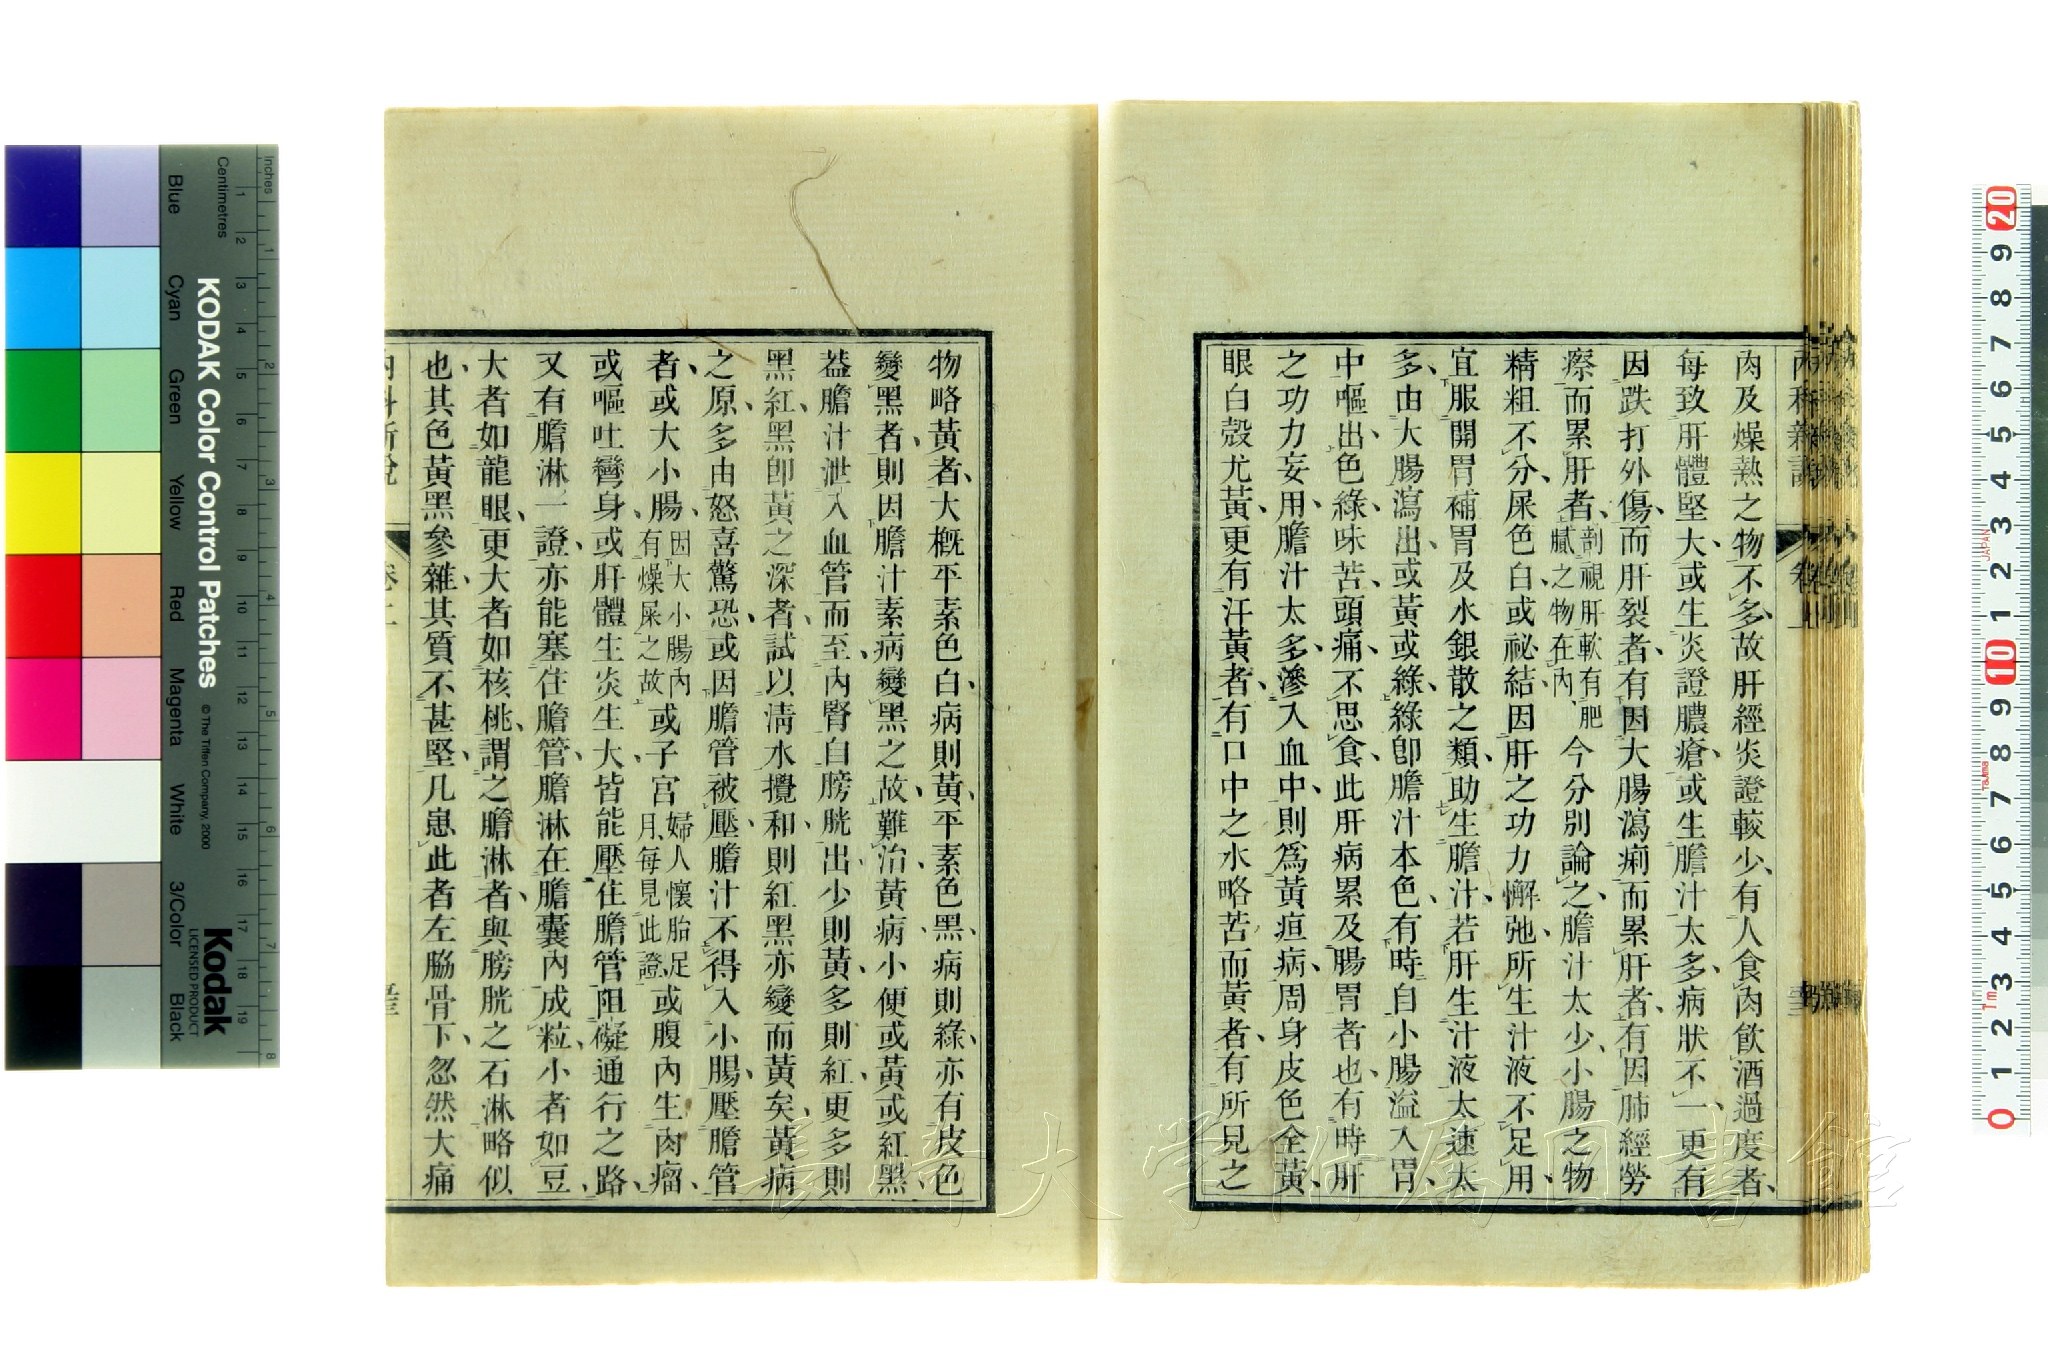 肉及燥熱之物不多、故肝經炎證較少、有人食肉飲酒過度者、
每致肝體堅大、或生炎證膿瘡、或生膽汁太多、病狀不一、更有
因跌打外傷、而肝裂者、有因大腸瀉痢而累肝者、有因肺經勞
瘵而累肝者、剖視肝軟有肥膩之物在內、今分別論之、膽汁太少、小腸之物
精粗不分、屎色白、或祕結、因肝之功力懈弛、所生汁液不足、用、
宜服開胃補胃及水銀散之類、助生膽汁、若肝生汁液太速太
多、由大腸瀉出、或黃或綠、綠卽膽汁本色、有時自小腸溢入胃、
中、嘔出、色綠、味苦、頭痛、不思食、此肝病累及腸胃者也、有時肝
之功力妄用、膽汁太多、滲入血中、則爲黃疸病、周身皮色全黃、
眼白殼尤黃、更有汗黃者、有口中之水略苦而黃者、有所見之
物略黃者、大概平素色白、病則黃、平素色黑、病則綠、亦有皮色
變黑者、則因膽汁素病變黑之故、難治、黃病小便或黃或紅黑、
葢膽汁泄入血管而至內腎、自膀胱出、少則黃、多則紅、更多則
黑、紅黑卽黃之深者、試以淸水攪和、則紅黑亦變而黃矣、黃病
之原、多由怒喜驚恐、或因膽管被壓、膽汁不得入小腸、壓膽管
者、或大小腸、因大小腸內有燥屎之故、或子宮、婦人懷胎足月、每見此證、或腹內生肉瘤、
或嘔吐彎身、或肝體生炎生大、皆能壓住膽管、阻礙通行之路、
又有膽淋一證、亦能塞住膽管、膽淋在膽囊內成粒、小者如豆、
大者如龍眼、更大者如核桃、謂之膽淋者、與膀胱之石淋略似
也、其色黃黑參雜、其質不甚堅、凡患此者、左脇骨下、忽然大痛
內科新說
卷上
KODAK Color Control Patches
© The Tiffen Company, 2000
Kodak
LICENSED PRODUCT
Inches
Centimetres
Blue
Cyan
Green
Yellow
Red
Magenta
White
3/Color
Black
1 2 3 4 5 6 7 8 9 10 11 12 13 14 15 16 17 18 19
1 2 3 4 5 6 7 8
20 9 8 7 6 5 4 3 2 1 10 9 8 7 6 5 4 3 2 1 0
長崎大学附属図書館